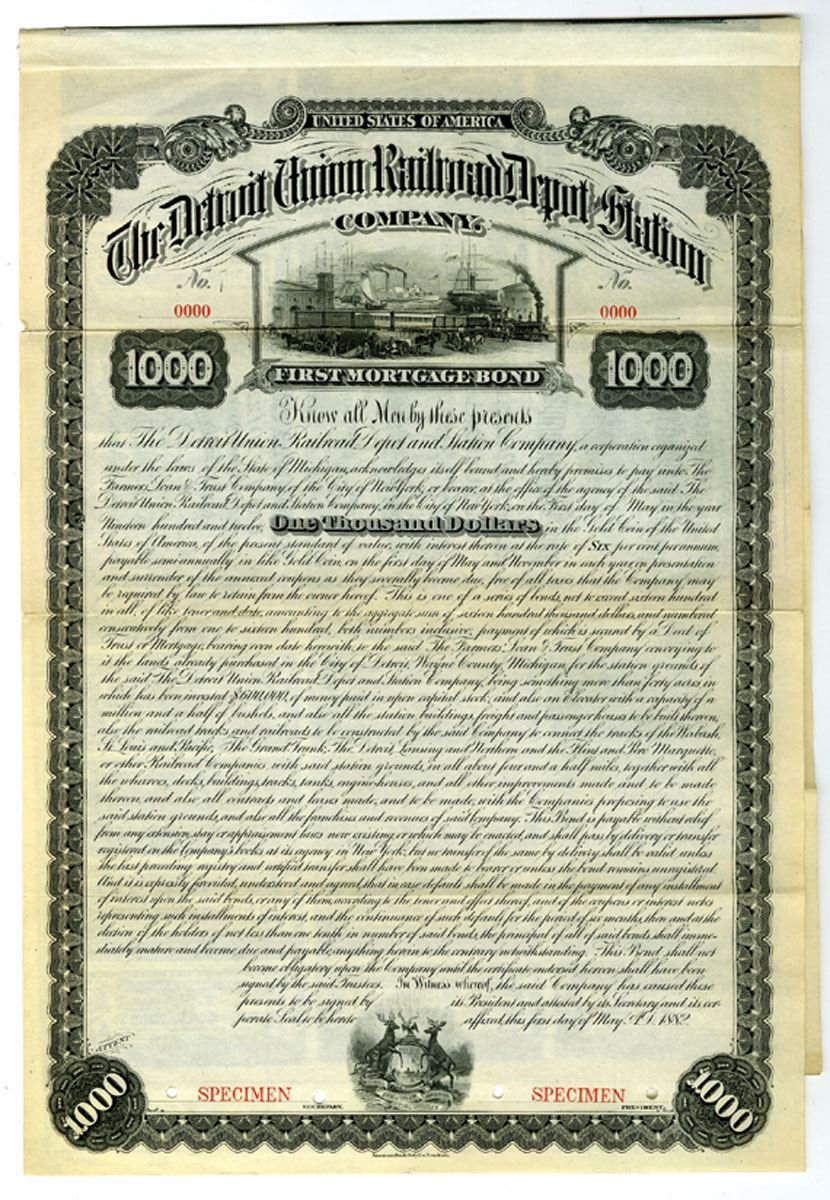 UNITED STATES OF AMERICA
The Detroit Union Railroad Depot and Station
COMPANY.
No. No.
0000 0000
1000 1000
FIRST MORTGAGE BOND
Know all Men by these presents
that The Detroit Union Railroad Depot and Station Company, a corporation organized
under the laws of the State of Michigan, acknowledges itself bound and hereby promises to pay unto The
Farmers Loan & Trust Company of the City of New York, or bearer, at the office of the agency of the said The
Detroit Union Railroad Depot and Station Company, in the City of New York, on the First day of May in the year
Nineteen hundred and twelve, One Thousand Dollars in the Gold Coin of the United
States of America, of the present standard of value, with interest thereon at the rate of Six per cent per annum,
payable semi-annually in like Gold Coin, on the first day of May and November in each year, on presentation
and surrender of the annexed coupons as they severally become due, free of all taxes that the Company may
be required by law to retain from the owner hereof. This is one of a series of bonds, not to exceed sixteen hundred
in all, of like tenor and date, amounting to the aggregate sum of sixteen hundred thousand dollars, and numbered
consecutively from one to sixteen hundred, both numbers inclusive, payment of which is secured by a Deed of
Trust or Mortgage, bearing even date herewith, to the said The Farmers' Loan & Trust Company conveying to
it the lands already purchased in the City of Detroit, Wayne County, Michigan, for the station grounds of
the said The Detroit Union Railroad Depot and Station Company, being something more than forty acres in
which has been invested $600,000, of money paid in upon capital stock, and also an Elevator with a capacity of a
million and a half of bushels, and also all the station buildings, freight and passenger houses to be built thereon,
also the railroad tracks and railroads to be constructed by the said Company to connect the tracks of the Wabash,
St. Louis and Pacific, The Grand Trunk, The Detroit, Lansing and Northern and the Flint and Pere Marquette,
or other Railroad Companies with said station grounds, in all about four and a half miles, together with all
the wharves, docks, buildings, tracks, tanks, engine houses, and all other improvements made and to be made
thereon, and also all contracts and leases made, and to be made, with the Companies proposing to use the
said station grounds, and also all the franchises and revenues of said Company. This Bond is payable without relief
from any extension, stay or appraisement laws now existing or which may be enacted, and shall pass by delivery or transfer
registered on the Company's books at its agency in New York, but no transfer of the same by delivery shall be valid unless
the last preceding registry and certified transfer shall have been made to bearer or unless the bond remains unregistered.
And it is expressly provided, understood and agreed, that in case default shall be made in the payment of any installment
of interest upon the said bonds, or any of them, according to the tenor and effect thereof, and of the coupons or interest notes
representing such installments of interest, and the continuance of such default for the period of six months, then and at the
election of the holders of not less than one tenth in number of said bonds, the principal of all of said bonds shall imme-
diately mature and become due and payable, anything herein to the contrary notwithstanding. This Bond shall not
become obligatory upon the Company until the certificate endorsed hereon shall have been
signed by the said Trustees. In Witness whereof, the said Company has caused these
presents to be signed by its President and attested by its Secretary and its cor-
porate Seal to be hereto affixed, this first day of May, A.D. 1882.
ATTEST
SPECIMEN SPECIMEN
SECRETARY. PRESIDENT.
1000 1000